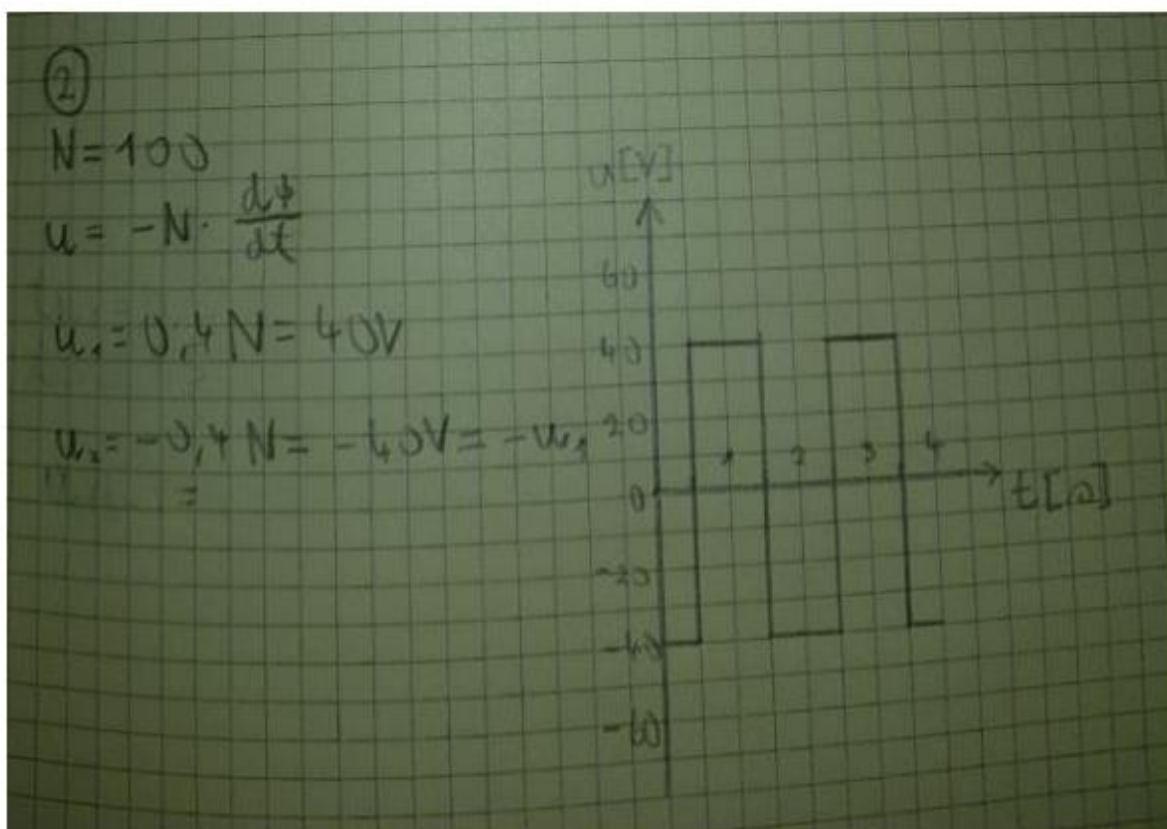 2
N=100
u = -N · dΦ/dt
u₁ = 0,4 N = 40V
u₂ = -0,4 N = -40V = -u₁
=
u[V]
60
40
20
0
-20
-40
-60
1 2 3 4
t[s]